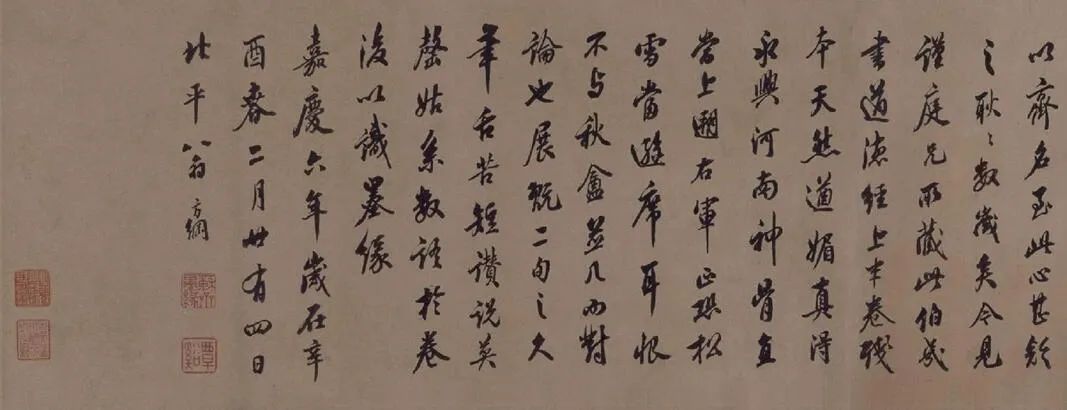 以齊名至此心甚欽
之耿耿數歲矣今見
謹庭兄所藏此伯幾
書道德經上半卷機
本天然遒媚真得
永興河南神骨直
當上溯右軍正恐松
雪當避席耳恨
不与秋盦並几而對
論也展翫二旬之久
筆舌苦短讚說莫
罄姑系數語於卷
後以識墨緣
嘉慶六年歲在辛
酉春二月廿有四日
北平翁方綱